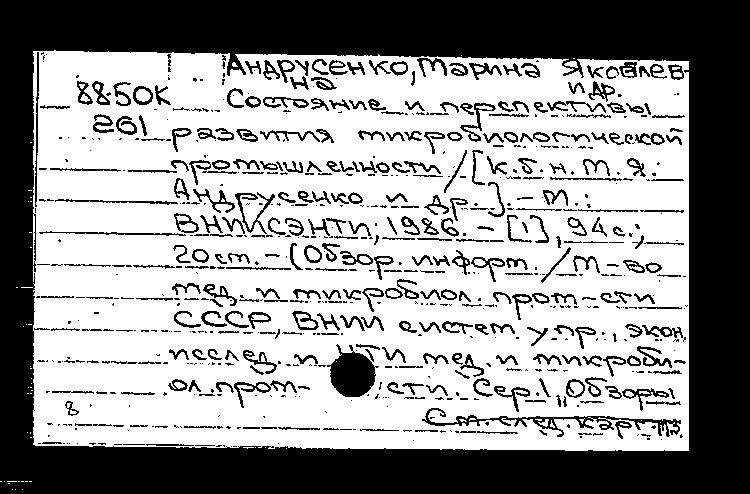 Андрусенко, Марина Яковлев-
на и др.
88-50К Состояние и перспективы
261 развития микробиологической
промышленности / [к.б.н. М.Я.
Андрусенко и др.]. - М.:
ВНИИСЭНТИ, 1986. - [1], 94 с.;
20 см. - (Обзор. информ. / М-во
мед. и микробиол. пром-сти
СССР, ВНИИ систем упр., экон.
исслед. и НТИ мед. и микроби-
ол. пром-сти. Сер. 1, "Обзоры
8 См. след. карт.